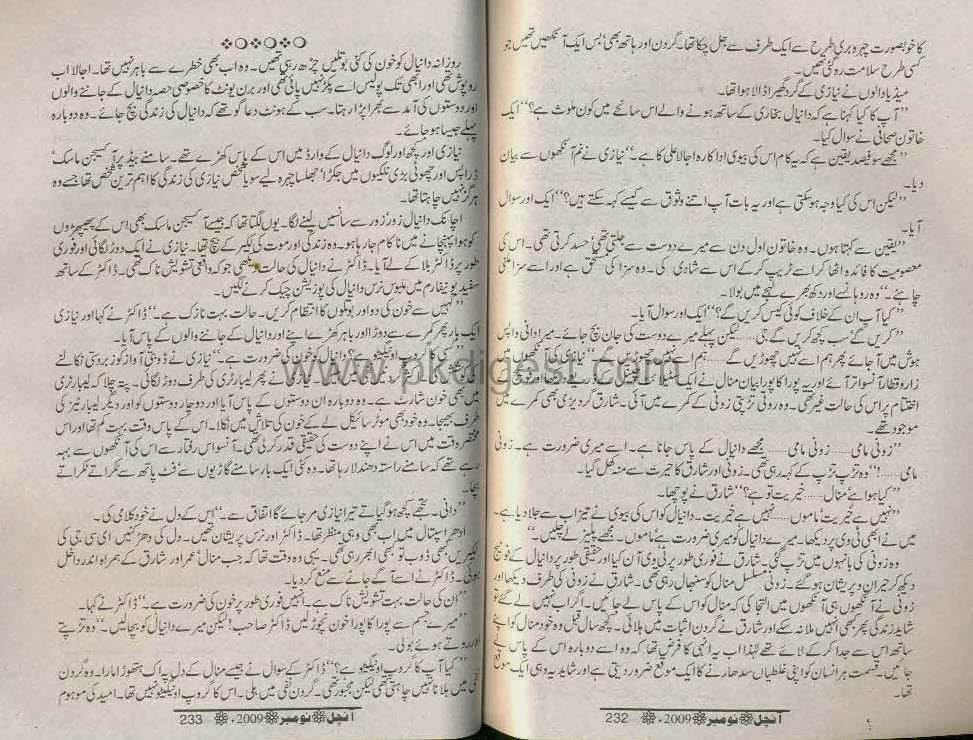 کا خوبصورت چہرہ بری طرح سے ایک طرف سے جل چکا تھا۔ گردن اور ہاتھ بھی‘ بس ایک آنکھیں تھیں جو
کسی طرح سلامت رہ گئی تھیں۔
میڈیا والوں نے نیازی کے گرد گھیرا ڈالا ہوا تھا۔
’’آپ کا کیا کہنا ہے کہ دانیال بخاری کے ساتھ ہونے والے اس سانحے میں کون ملوث ہے؟‘‘ ایک
خاتون صحافی نے سوال کیا۔
’’مجھے سو فیصد یقین ہے کہ یہ کام اس کی بیوی اداکارہ اجالا علی کا ہے۔‘‘ نیازی نے نم آنکھوں سے بیان
دیا۔
’’لیکن اس کی کیا وجہ ہو سکتی ہے اور یہ بات آپ اتنے وثوق سے کیسے کہہ سکتے ہیں؟‘‘ ایک اور سوال
آیا۔
’’یقین سے کہتا ہوں۔ وہ خاتون اول دن سے میرے دوست سے جلتی تھی‘ حسد کرتی تھی۔ اس کی
معصومیت کا فائدہ اٹھا کر اسے ٹریپ کر کے اس سے شادی کی۔ وہ سزا کی مستحق ہے اور اسے سزا ملنی
چاہئے۔‘‘ وہ روہانسے اور دکھ بھرے لہجے میں بولا۔
’’کیا آپ ان کے خلاف کوئی کیس کریں گے؟‘‘ ایک اور سوال آیا۔
’’کریں گے‘ سب کچھ کریں گے جی...... لیکن پہلے میرے دوست کی جان بچ جائے۔ میرا دانی واپس
ہوش میں آجائے پھر ہم اسے نہیں چھوڑیں گے...... ہم اسے نہیں چھوڑیں گے۔‘‘ نیازی کی آنکھوں میں
زاروقطار آنسو آئے اور یہ پورا کا پورا بیان منال نے ایک
اختتام پر اس کی حالت غیر تھی۔ وہ روتی تڑپتی زونی کے کمرے میں آئی۔ شارق گردیزی بھی کمرے میں
موجود تھے۔
’’زونی مامی...... زونی مامی...... مجھے دانیال کے پاس جانا ہے۔ اسے میری ضرورت ہے۔ زونی
مامی......!‘‘ وہ تڑپ تڑپ کے کہہ رہی تھی۔ زونی اور شارق کا حیرت سے منہ کھل گیا۔
’’کیا ہوا ہے منال...... خیریت تو ہے؟‘‘ شارق نے پوچھا۔
’’نہیں ہے خیریت‘ ماموں...... نہیں ہے خیریت۔ دانیال کو اس کی بیوی نے تیزاب سے جلا دیا ہے۔
میں نے ابھی ٹی وی پر دیکھا۔ میرے دانیال کو میری ضرورت ہے ماموں۔ مجھے پلیز لے چلیں۔‘‘
وہ زونی کی بانہوں میں تڑپ گئی۔ شارق نے فوری طور پر ٹی وی آن کیا اور حقیقی طور پر دانیال کے فوٹیج
دیکھ کر حیران و پریشان ہو گئے۔ زونی مسلسل منال کو سنبھال رہی تھی۔ شارق نے زونی کی طرف دیکھا اور
زونی نے آنکھوں ہی آنکھوں میں التجا کی کہ منال کو اس کے پاس لے جائیں۔ اگر اب نہیں لے گئے تو
شاید زندگی پھر بھی انہیں ملا نہ سکے اور شارق نے گردن اثبات میں ہلائی۔ کچھ سال قبل وہ خود منال کو اپنے
ساتھ اس سے جدا کر کے لائے تھے لہٰذا اب یہ انہی کا فرض تھا کہ وہ اسے دوبارہ اس کے پاس لے
جائیں۔ قسمت ہر انسان کو اپنی غلطیاں سدھارنے کا ایک موقع ضرور دیتی ہے اور شاید یہ وہی ایک موقع
تھا۔
آنچل نومبر ۲۰۰۹ء 232
روزانہ دانیال کو خون کی کئی بوتلیں چڑھ رہی تھیں۔ وہ اب بھی خطرے سے باہر نہیں تھا۔ اجالا اب
روپوش تھی اور ابھی تک پولیس اسے پکڑ نہیں پائی تھی اور برن یونٹ کا خصوصی حصہ دانیال کے جاننے والوں
اور دوستوں کی آمد سے بھرا پڑا رہتا۔ سب کے ہونٹ دعا گو تھے کہ دانیال کی زندگی بچ جائے۔ وہ دوبارہ
پہلے جیسا ہو جائے۔
نیازی اور کچھ اور لوگ دانیال کے وارڈ میں اس کے پاس کھڑے تھے۔ سامنے بیڈ پر آکسیجن ماسک‘
ڈراپس اور چھوٹی بڑی نلکیوں میں جکڑا‘ جھلسا چہرہ لیے سویا شخص نیازی کی زندگی کا اہم ترین شخص تھا جسے وہ
ہرگز نہیں چاہتا تھا۔
اچانک دانیال زور زور سے سانسیں لینے لگا۔ یوں لگتا تھا کہ جیسے آکسیجن ماسک بھی اس کے پھیپھڑوں
کو ہوا پہنچانے میں ناکام جا رہا ہو۔ وہ زندگی اور موت کی لکیر کے بیچ تھا۔ نیازی نے ایک دوڑ لگائی اور فوری
طور پر ڈاکٹر بلا کے لے آیا۔ ڈاکٹر نے دانیال کی حالت دیکھی جو کہ واقعی تشویش ناک تھی۔ ڈاکٹر کے ساتھ
سفید یونیفارم میں ملبوس نرس دانیال کی پوزیشن چیک کرنے لگیں۔
’’کہیں سے خون کی دو اور بوتلوں کا انتظام کریں۔ حالت بہت نازک ہے۔‘‘ ڈاکٹر نے کہا اور نیازی
ایک بار پھر کمرے سے دوڑا اور باہر کھڑے اپنے اور دانیال کے جاننے والوں کے پاس آیا۔
’’کسی کا گروپ او نیگیٹو ہے؟ دانیال کو خون کی ضرورت ہے۔‘‘ نیازی نے ڈوبتی آواز کو زبردستی نکالنے
نے پھر لیبارٹری کی طرف دوڑ لگائی۔ پتہ چلا کہ لیبارٹری
میں بھی خون شارٹ ہے۔ وہ دوبارہ ان دوستوں کے پاس آیا اور دو چار دوستوں کو اور دیگر لیبارٹیز کی
طرف بھیجا۔ وہ خود بھی موٹر سائیکل لے کے خون کی تلاش میں نکلا۔ اس کے پاس وقت بہت کم تھا اور اس
مختصر وقت میں اس نے اپنے دوست کی حقیقی قدر کرنی تھی۔ آنسو اس رفتار سے اس کی آنکھوں سے بہہ
رہے تھے کہ سامنے راستہ دھندلا رہا تھا۔ وہ کئی ایک بار سامنے گاڑیوں سے‘ فٹ پاتھ سے ٹکراتے ٹکراتے
بچا۔
’’دانی۔ تجھے کچھ ہو گیا تو تیرا نیازی مر جائے گا اتفاق سے۔‘‘ اس کے دل نے خود کلامی کی۔
ادھر اسپتال میں اب بھی وہی منظر تھا۔ ڈاکٹر اور نرس پریشان تھیں۔ دل کی دھڑکنیں ای سی جی کی
لکیریں بھی ڈوب تو بھی ابھر رہی تھی۔ یہی وہ وقت تھا کہ جب منال‘ عمر اور شارق کے ہمراہ اندر داخل
ہوئی۔ ڈاکٹر نے اسے آگے جانے سے منع کر دیا۔
’’ان کی حالت بہت تشویش ناک ہے۔ انہیں فوری طور پر خون کی ضرورت ہے۔‘‘ ڈاکٹر نے کہا۔
’’میرے جسم سے پورا کا پورا خون نچوڑ لیں ڈاکٹر صاحب! لیکن میرے دانیال کو بچا لیں۔‘‘ وہ تڑپتے
اور روتے ہوئے بولی۔
’’کیا آپ کا گروپ او نیگیٹو ہے؟‘‘ ڈاکٹر کے سوال نے جیسے منال کے دل پہ اک ہتھوڑا مارا۔ وہ گردن
نفی میں ہلانا نہیں چاہتی تھی لیکن مجبور تھی۔ گردن نفی میں ہلی۔ اس کا گروپ او نیگیٹو نہیں تھا۔ امید کی موہوم
آنچل نومبر ۲۰۰۹ء 233
www.pkdigest.com